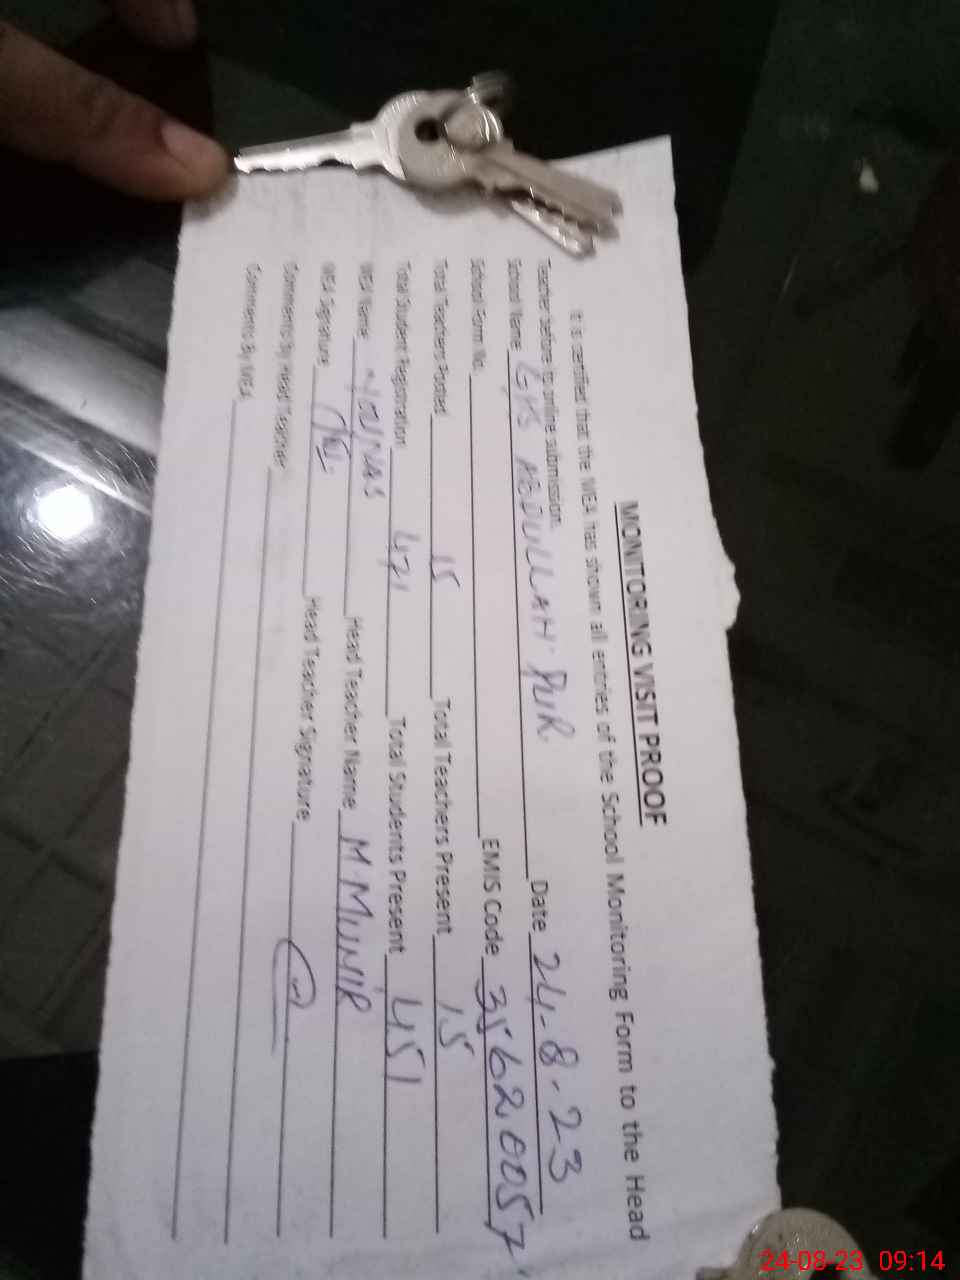 MONITORING VISIT PROOF
It is certified that the MEA has shown all entries of the School Monitoring Form to the Head
Teacher before its online submission.
School Name GHS ABDULLAH PUR Date 24-8-23
School Form No. EMIS Code 35620057
Total Teachers Posted 15 Total Teachers Present 15
Total Student Registration 471 Total Students Present 451
MEA Name YOUNAS Head Teacher Name M. MUNIR
MEA Signature Head Teacher Signature
Comments By Head Teacher
Comments By MEA
24-08-23 09:14